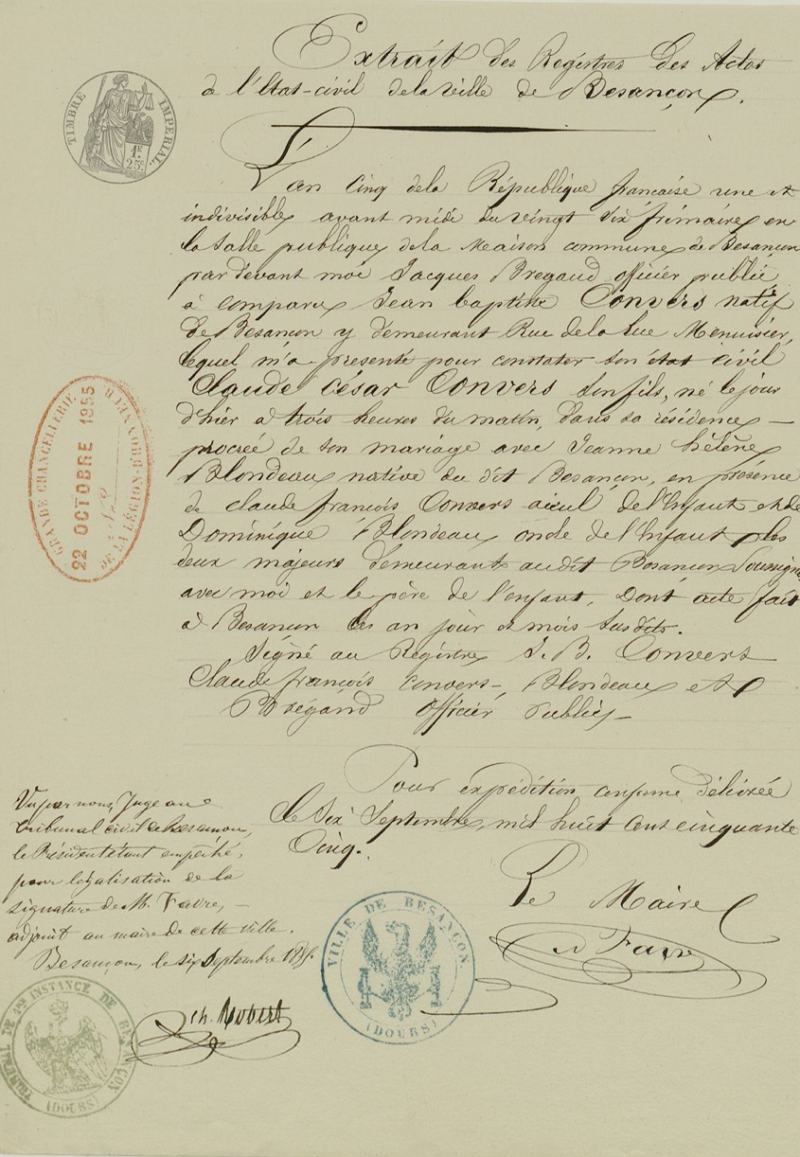 Extrait des Registres des Actes
de l'Etat-civil de la ville de Besançon.
TIMBRE IMPERIAL.
1F. 25c.
L'an Cinq de la République française une et
indivisible avant midi du vingt six frimaire en
la salle publique de la Maison commune de Besançon
par devant moi Jacques Bregaud officier public
à comparu Jean baptiste Convers natif
de Besançon y demeurant Rue de la Lue Menuisier,
lequel m'a presenté pour constater son état civil
Claude César Convers son fils, né le jour
d'hier à trois heures du matin, dans sa résidence —
procréé de son mariage avec Jeanne hélène
Blondeau native du dit Besançon, en présence
de claude françois Convers aieul de l'Enfant et de
Dominique Blondeau oncle de l'Enfant les
deux majeurs demeurant audit Besançon Soussignés
avec moi et le père de l'enfant. Dont acte fait
à Besancon les an jour et mois susdits.
Signé au Registre J. B. Convers
Claude françois Convers, Blondeau et
Brégand officier Public —
GRANDE CHANCELLERIE
22 OCTOBRE 1855
DE LA LÉGION D'HONNEUR
Pour expédition conforme délivrée
le Six Septembre, mil huit cent cinquante
Cinq.
Le Maire
Favre
Vu par nous, Juge au
tribunal civil de Besançon,
le Président étant empêché,
pour légalisation de la
signature de M. Favre, —
adjoint au maire de cette ville.
Besançon, le six Septembre 1855.
Ch. Robert
VILLE DE BESANÇON.
(DOUBS)
TRIBUNAL DE 1re INSTANCE DE BESANÇON
(DOUBS)